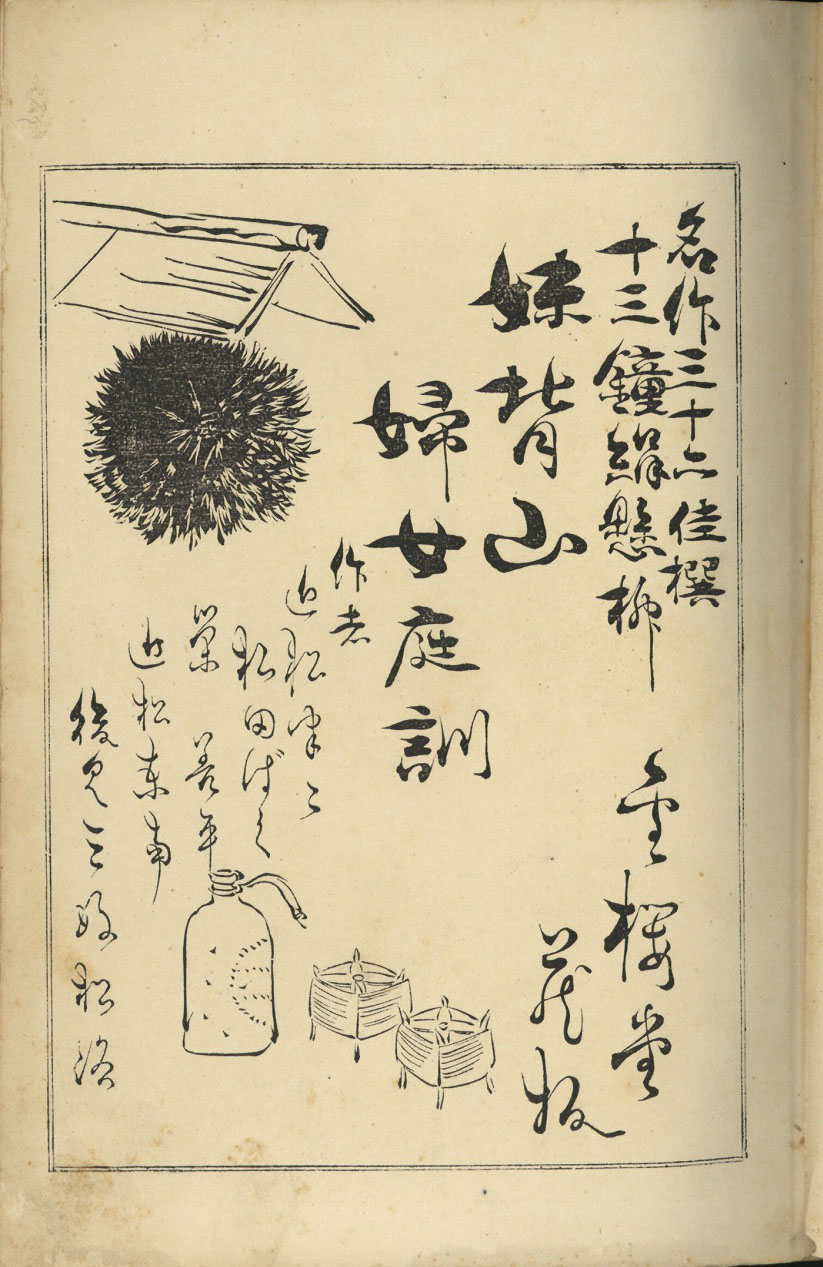 名作三十六佳撰
十三鐘絹懸柳
妹背山
婦女庭訓
作者
近松半二
松田ばく
栄善平
近松東南
後見三好松洛
金桜堂
蔵板